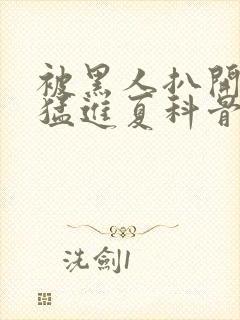 被黑人扒開
猛進夏科骨
洗劍1